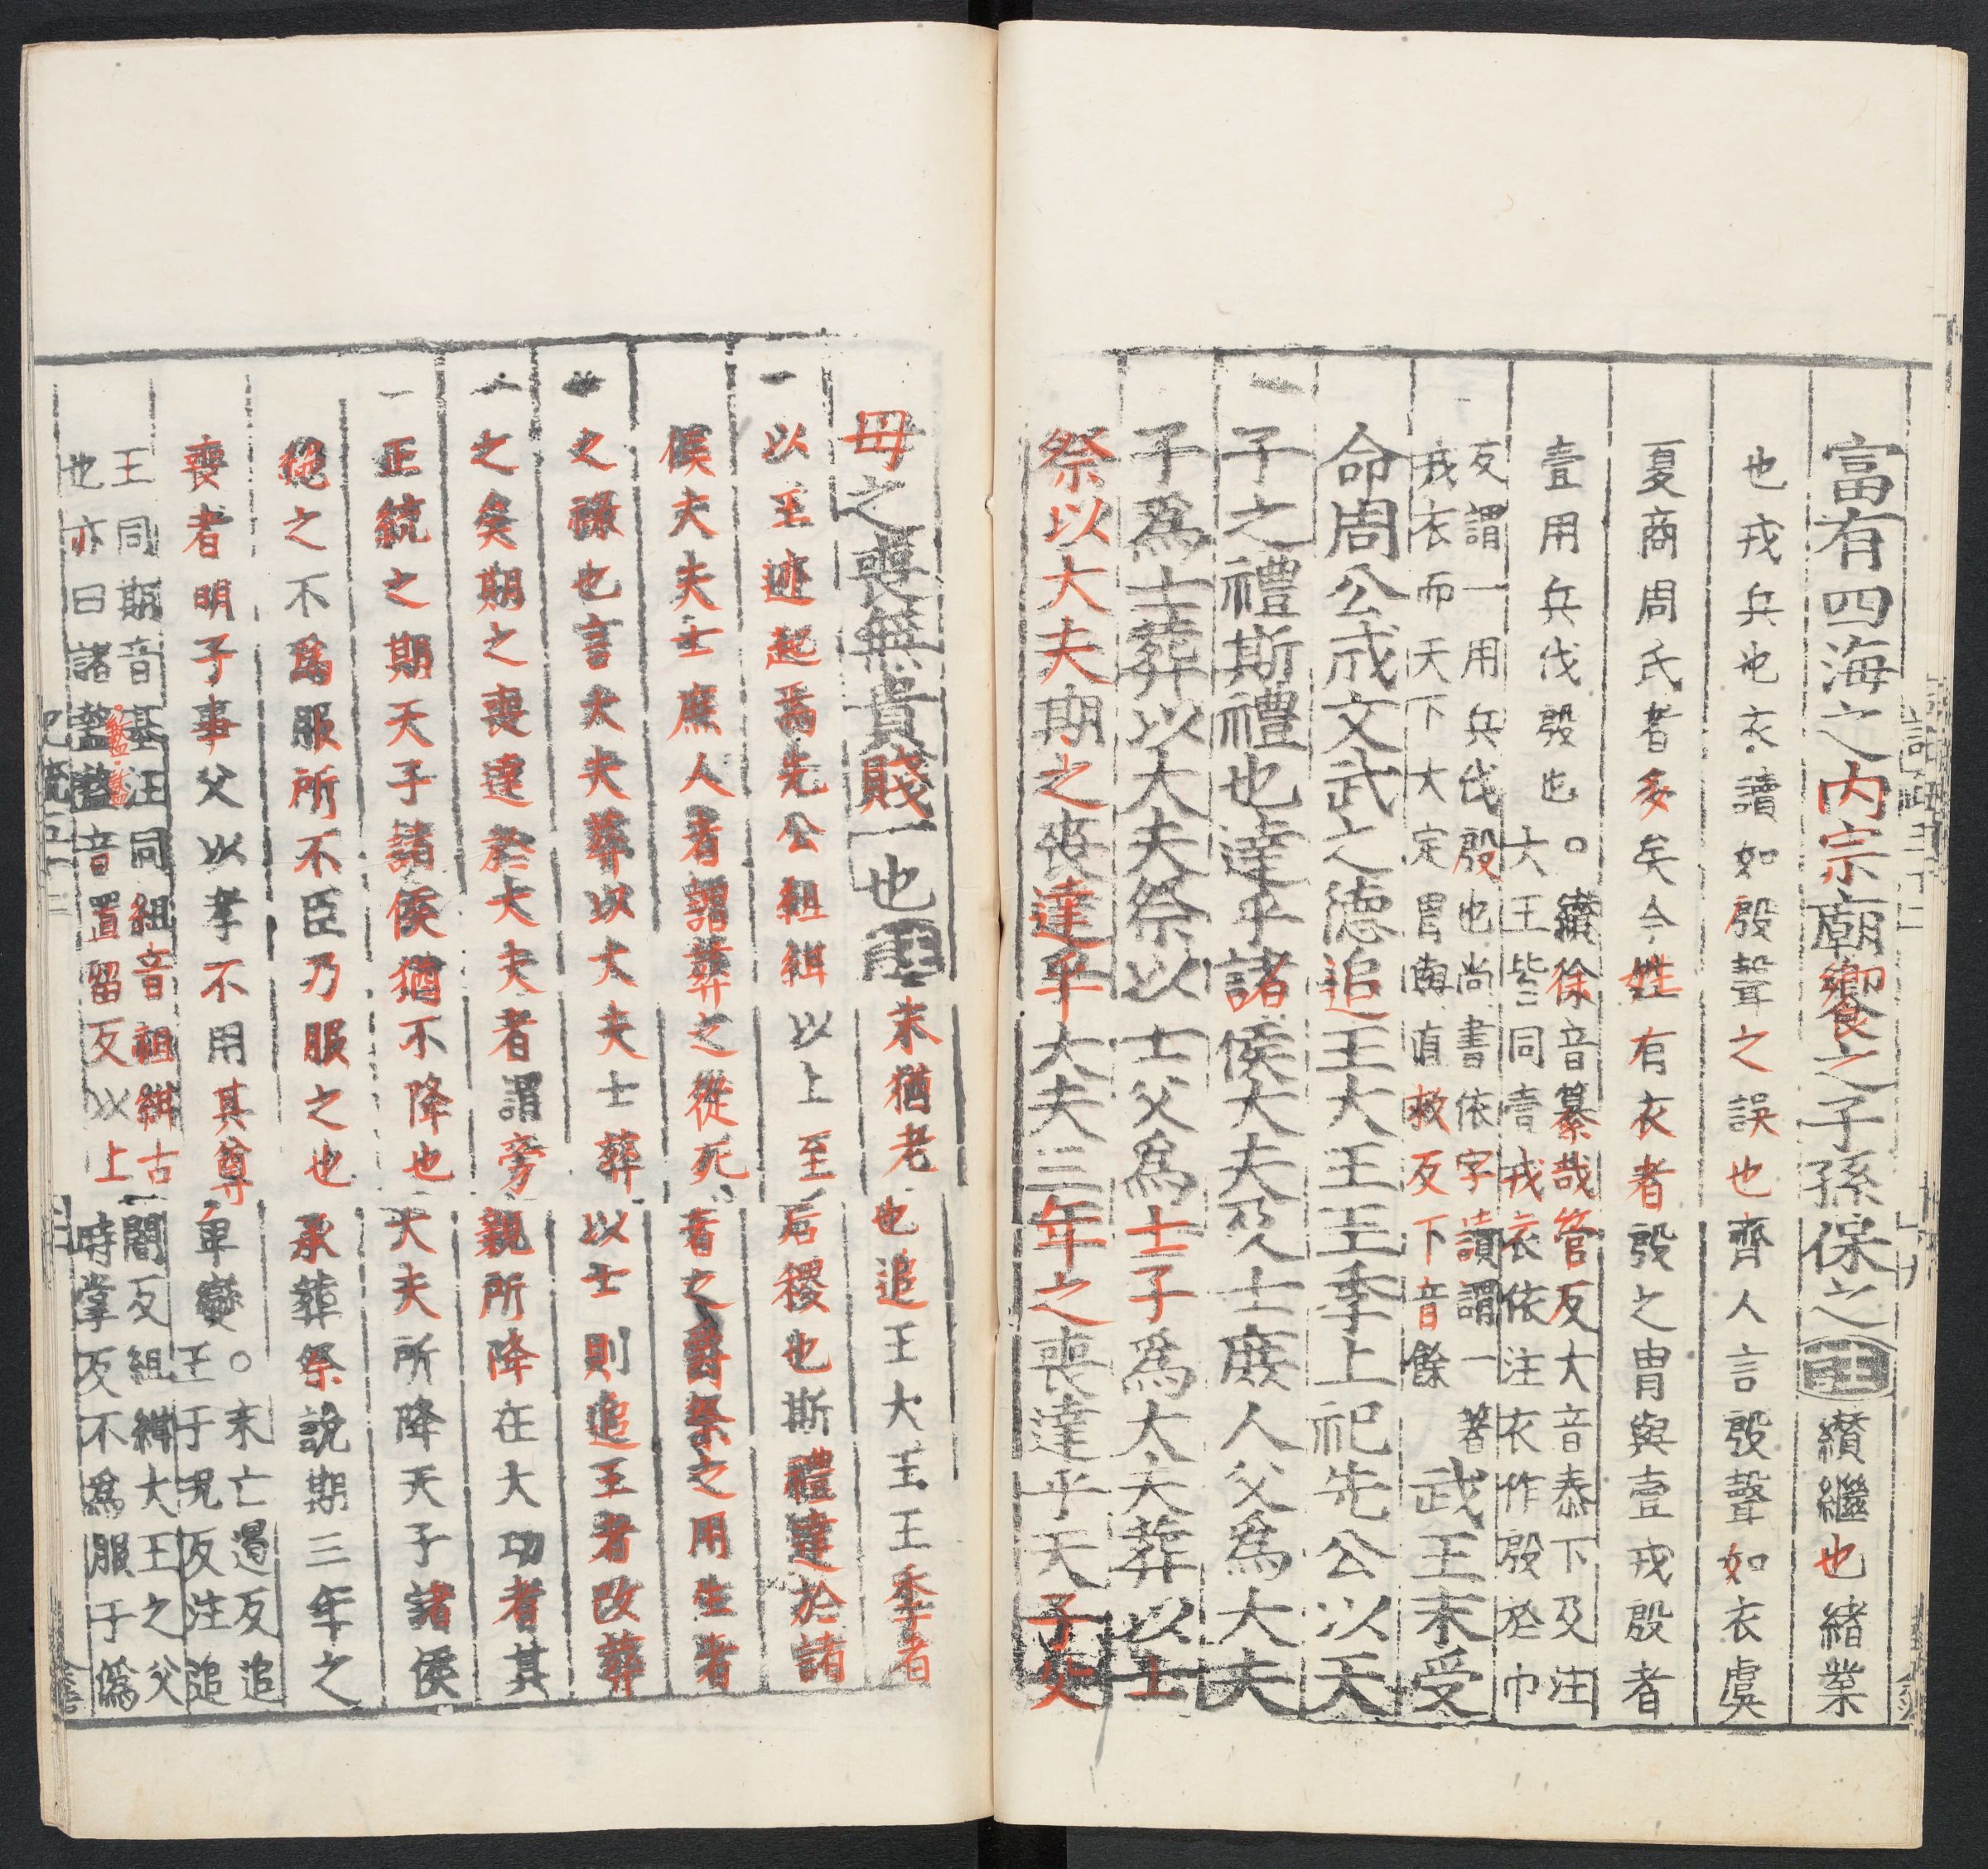 富有四海之内宗廟饗之子孫保之註纘繼也緒業
也戎兵也衣讀如殷聲之誤也齊人言殷聲如衣虞
夏商周氏者多矣今姓有衣者殷之冑與壹戎殷者
壹用兵伐殷也○纘徐音纂哉管反大音泰下及注
大王皆同壹戎衣依注衣作殷於巾
反謂一用兵伐殷也尚書依字讀謂一著
戎衣而天下大定冑直救反下音餘
武王末受
命周公成文武之德追王大王王季上祀先公以天
子之禮斯禮也達乎諸侯大夫及士庶人父為大夫
子為士葬以大夫祭以士父為士子為大夫葬以士
祭以大夫期之喪達乎大夫三年之喪達乎天子父
母之喪無貴賤一也註末猶老也追王大王王季者
以王迹起焉先公組紺以上至后稷也斯禮達於諸
侯大夫士庶人者謂葬之從死者之爵祭之用生者
之祿也言大夫葬以大夫士葬以士則追王者改葬
之矣期之喪達於大夫者謂旁親所降在大功者其
正統之期天子諸侯猶不降也大夫所降天子諸侯
絶之不為服所不臣乃服之也承葬祭說期三年之
喪者明子事父以孝不用其尊卑變○末亡遏反追
王于況反注追
王同期音基注同組音祖紺古闇反組紺大王之父
也亦曰諸盩盩音置留反以上時掌反不為服于偽